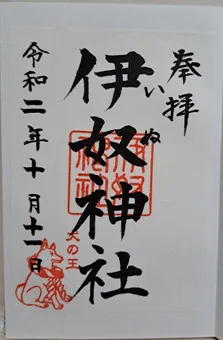 奉拝
伊奴神社
いぬ
令和二年十月十一日
犬の王